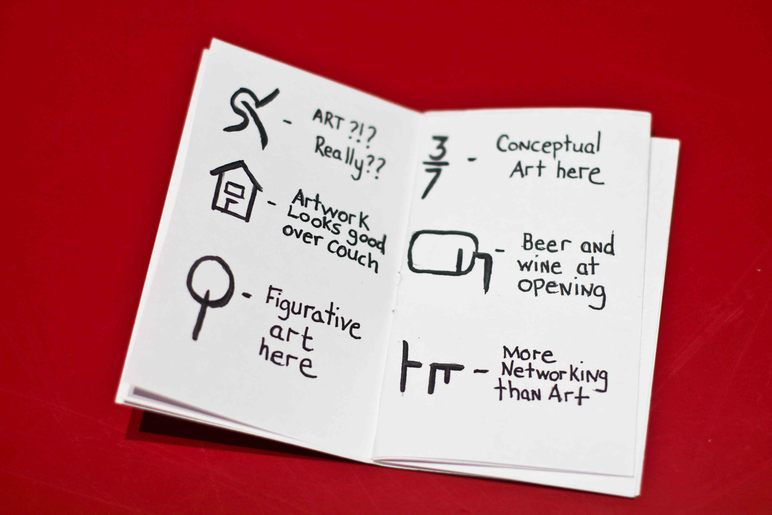 ART?!?
Really??
Artwork
Looks good
over couch
Figurative
art
here
3
7
Conceptual
Art here
Beer and
wine at
opening
More
Networking
than Art